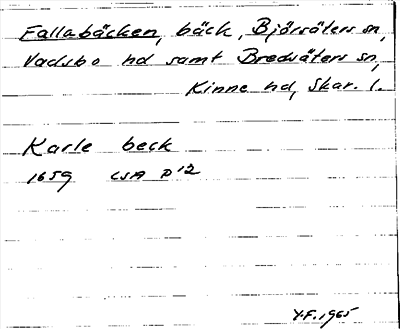 Fallabäcken, bäck, Björsäters sn,
Vadsbo hd samt Bredsäters sn,
Kinne hd, Skar. l.
Karle beck
1659 LSA P 12
Y.F. 1965